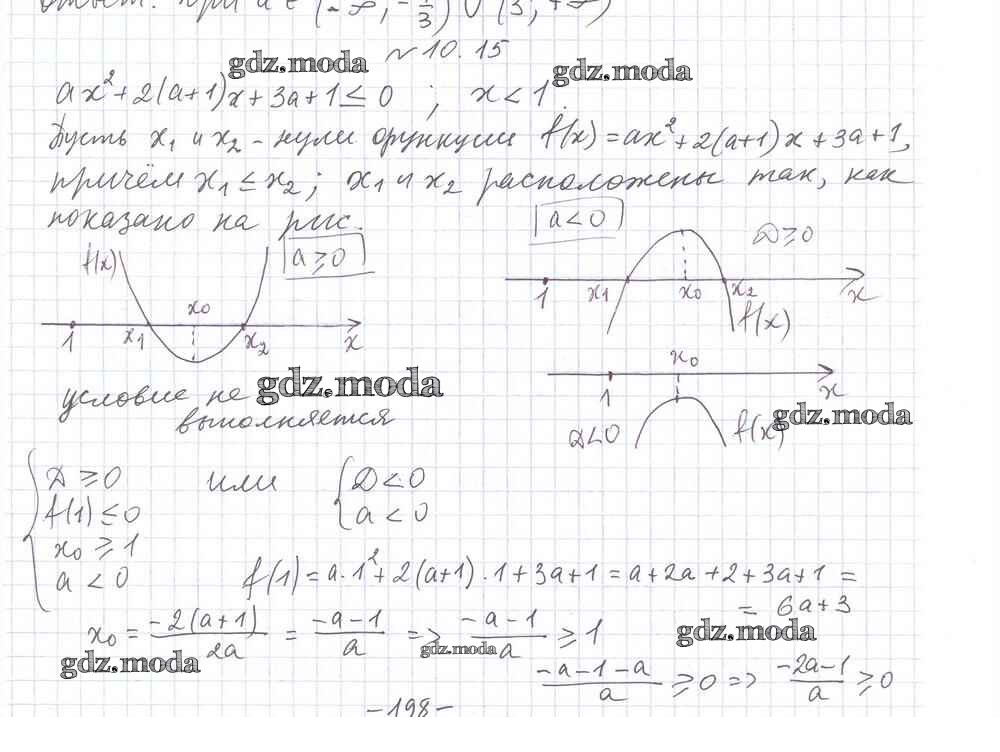 Ответ: при a ∈ (-∞; -1/3) ∪ (3; +∞)
№ 10.15
gdz.moda
gdz.moda
ax² + 2(a+1)x + 3a + 1 ≤ 0 ; x < 1.
Пусть x₁ и x₂ - нули функции f(x) = ax² + 2(a+1)x + 3a + 1,
причём x₁ ≤ x₂; x₁ и x₂ расположены так, как
показано на рис.
a < 0
D ≥ 0
f(x)
a ≥ 0
x₀
1 x₁ x₂ x
1 x₁ x₀ x₂ x
f(x)
x₀
1 x
D < 0 f(x)
gdz.moda
условие не gdz.moda
выполняется
D ≥ 0 или D < 0
f(1) ≤ 0 a < 0
x₀ ≥ 1
a < 0 f(1) = a·1² + 2(a+1)·1 + 3a + 1 = a + 2a + 2 + 3a + 1 =
= 6a + 3
x₀ = -2(a+1)/2a = -a-1/a => -a-1/a ≥ 1
gdz.moda
gdz.moda
gdz.moda
-a-1-a/a ≥ 0 => -2a-1/a ≥ 0
-198-